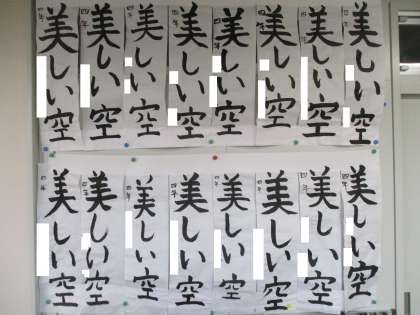 美しい空
四年
美しい空
四年
美しい空
四年
美しい空
四年
美しい空
四年
美しい空
四年
美しい空
四年
美しい空
四年
美しい空
四年
美しい空
四年
美しい空
四年
美しい空
四年
美しい空
四年
美しい空
四年
美しい空
四年
美しい空
四年